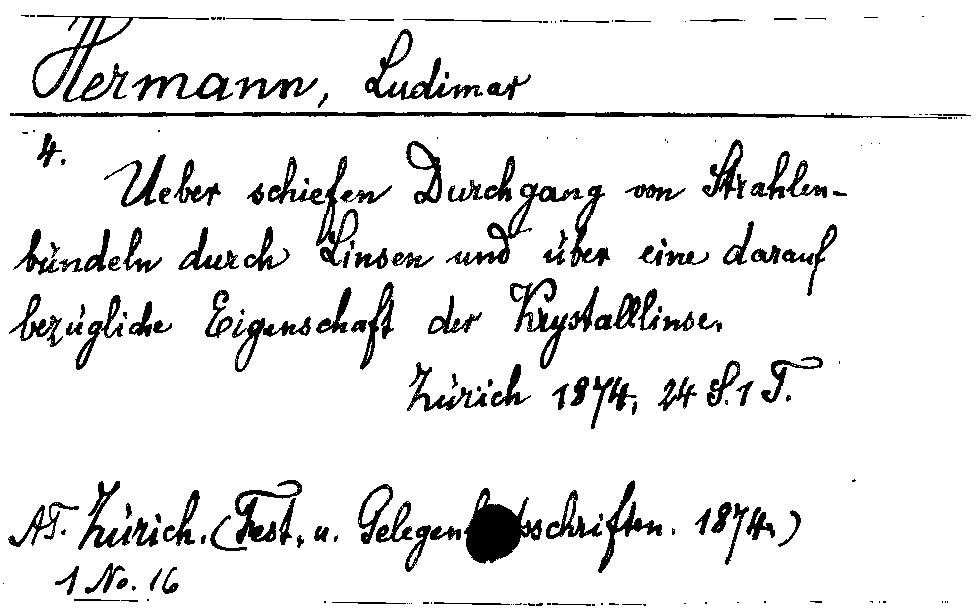 Hermann, Ludimar
4.
Ueber schiefen Durchgang von Strahlen-
bündeln durch Linsen und über eine darauf
bezügliche Eigenschaft der Krystalllinse.
Zürich 1874, 24 S. 1 T.
AT. Zürich. (Fest. u. Gelegenheitsschriften. 1874.)
1 No. 16